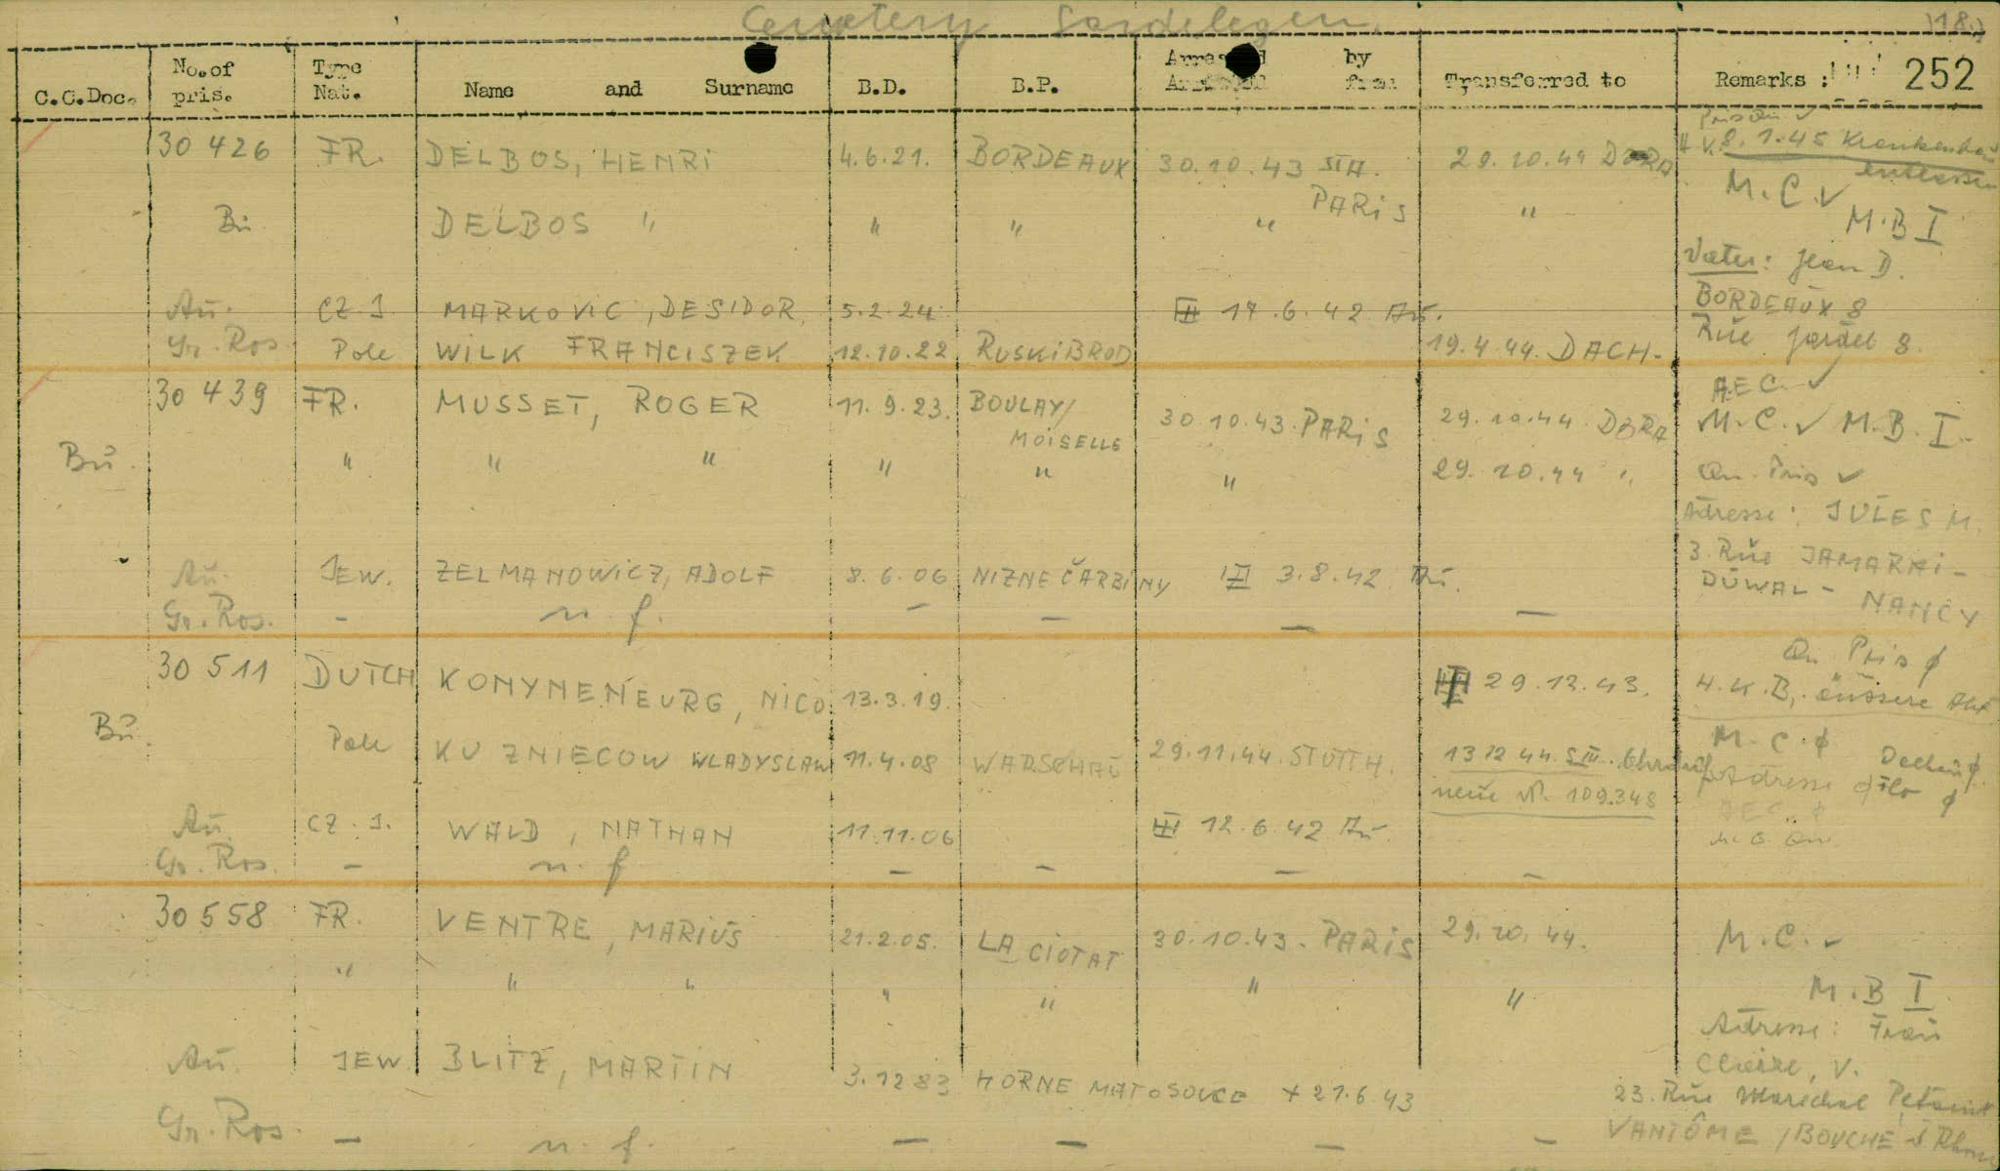 Cemetery Gardelegen.
18.)
C.C.Doc. No.of pris. Type Nat. Name and Surname B.D. B.P. Arrested by from Transferred to Remarks : 252
30 426 FR. DELBOS, HENRi 4.6.21. BORDEAUX 30.10.43 STA. PARiS 29.10.44 DORA
8.1.45 Krankenhaus entlassen
M.C.✓
Bu DELBOS " " " " "
M.B I
Vater: Jean D.
BORDEAUX 8
Au. CZ J. MARKOVIC, DESIDOR 5.2.24 17.6.42 Au.
Rue Jardel 8.
Gr. Ros. Pole WiLK FRANCiSZEK 12.10.22 RUSKiBROD 19.4.44. DACH-
AEC ✓
30 439 FR. MUSSET, ROGER 11.9.23. BOULAY/ MOiSELLE 30.10.43. PARiS 29.10.44 DORA M.C.✓ M.B.I.
Bu. " " " " " " 29.10.44 " Qu. Pris ✓
Adresse: JULES M.
3. Rue
DUWAL - NANCY
Au. JEW. ZELMANOWiCZ, ADOLF 8.6.06 NIZNE ČARBINY 3.8.42 Au.
Gr. Ros. - n. f. - - - -
30 511 DUTCH KONYNENEURG, NICO 13.3.19. 29.12.43. Qu Pris ø
H.K.B, äussere Abt
Bu. Pole KUZNIECOW WLADYSLAW 11.4.08 WARSCHAU 29.11.44. STUTTH. 13 12 44 S III. Ohrdruf
neue Nr. 109.348
M.C.ø
Adresse ø
AEC. ø
Au. CZ.J. WALD, NATHAN 11.11.06 12.6.42 Au
Gr. Ros. - n. f - - - -
30 558 FR. VENTRE, MARiUS 21.2.05. LA CiOTAT 30.10.43. PARiS 29.10.44. M.C.✓
" " " " " " "
M.B I
Adresse: Frau
Claire, V.
Au. JEW BLITZ, MARTIN 3.12 83 HORNE MATOSOVCE + 21.6.43
23. Rue Marechal Petain
VANTÔME / BOUCHE d Rhone
Gr. Ros. - n. f. - - - -